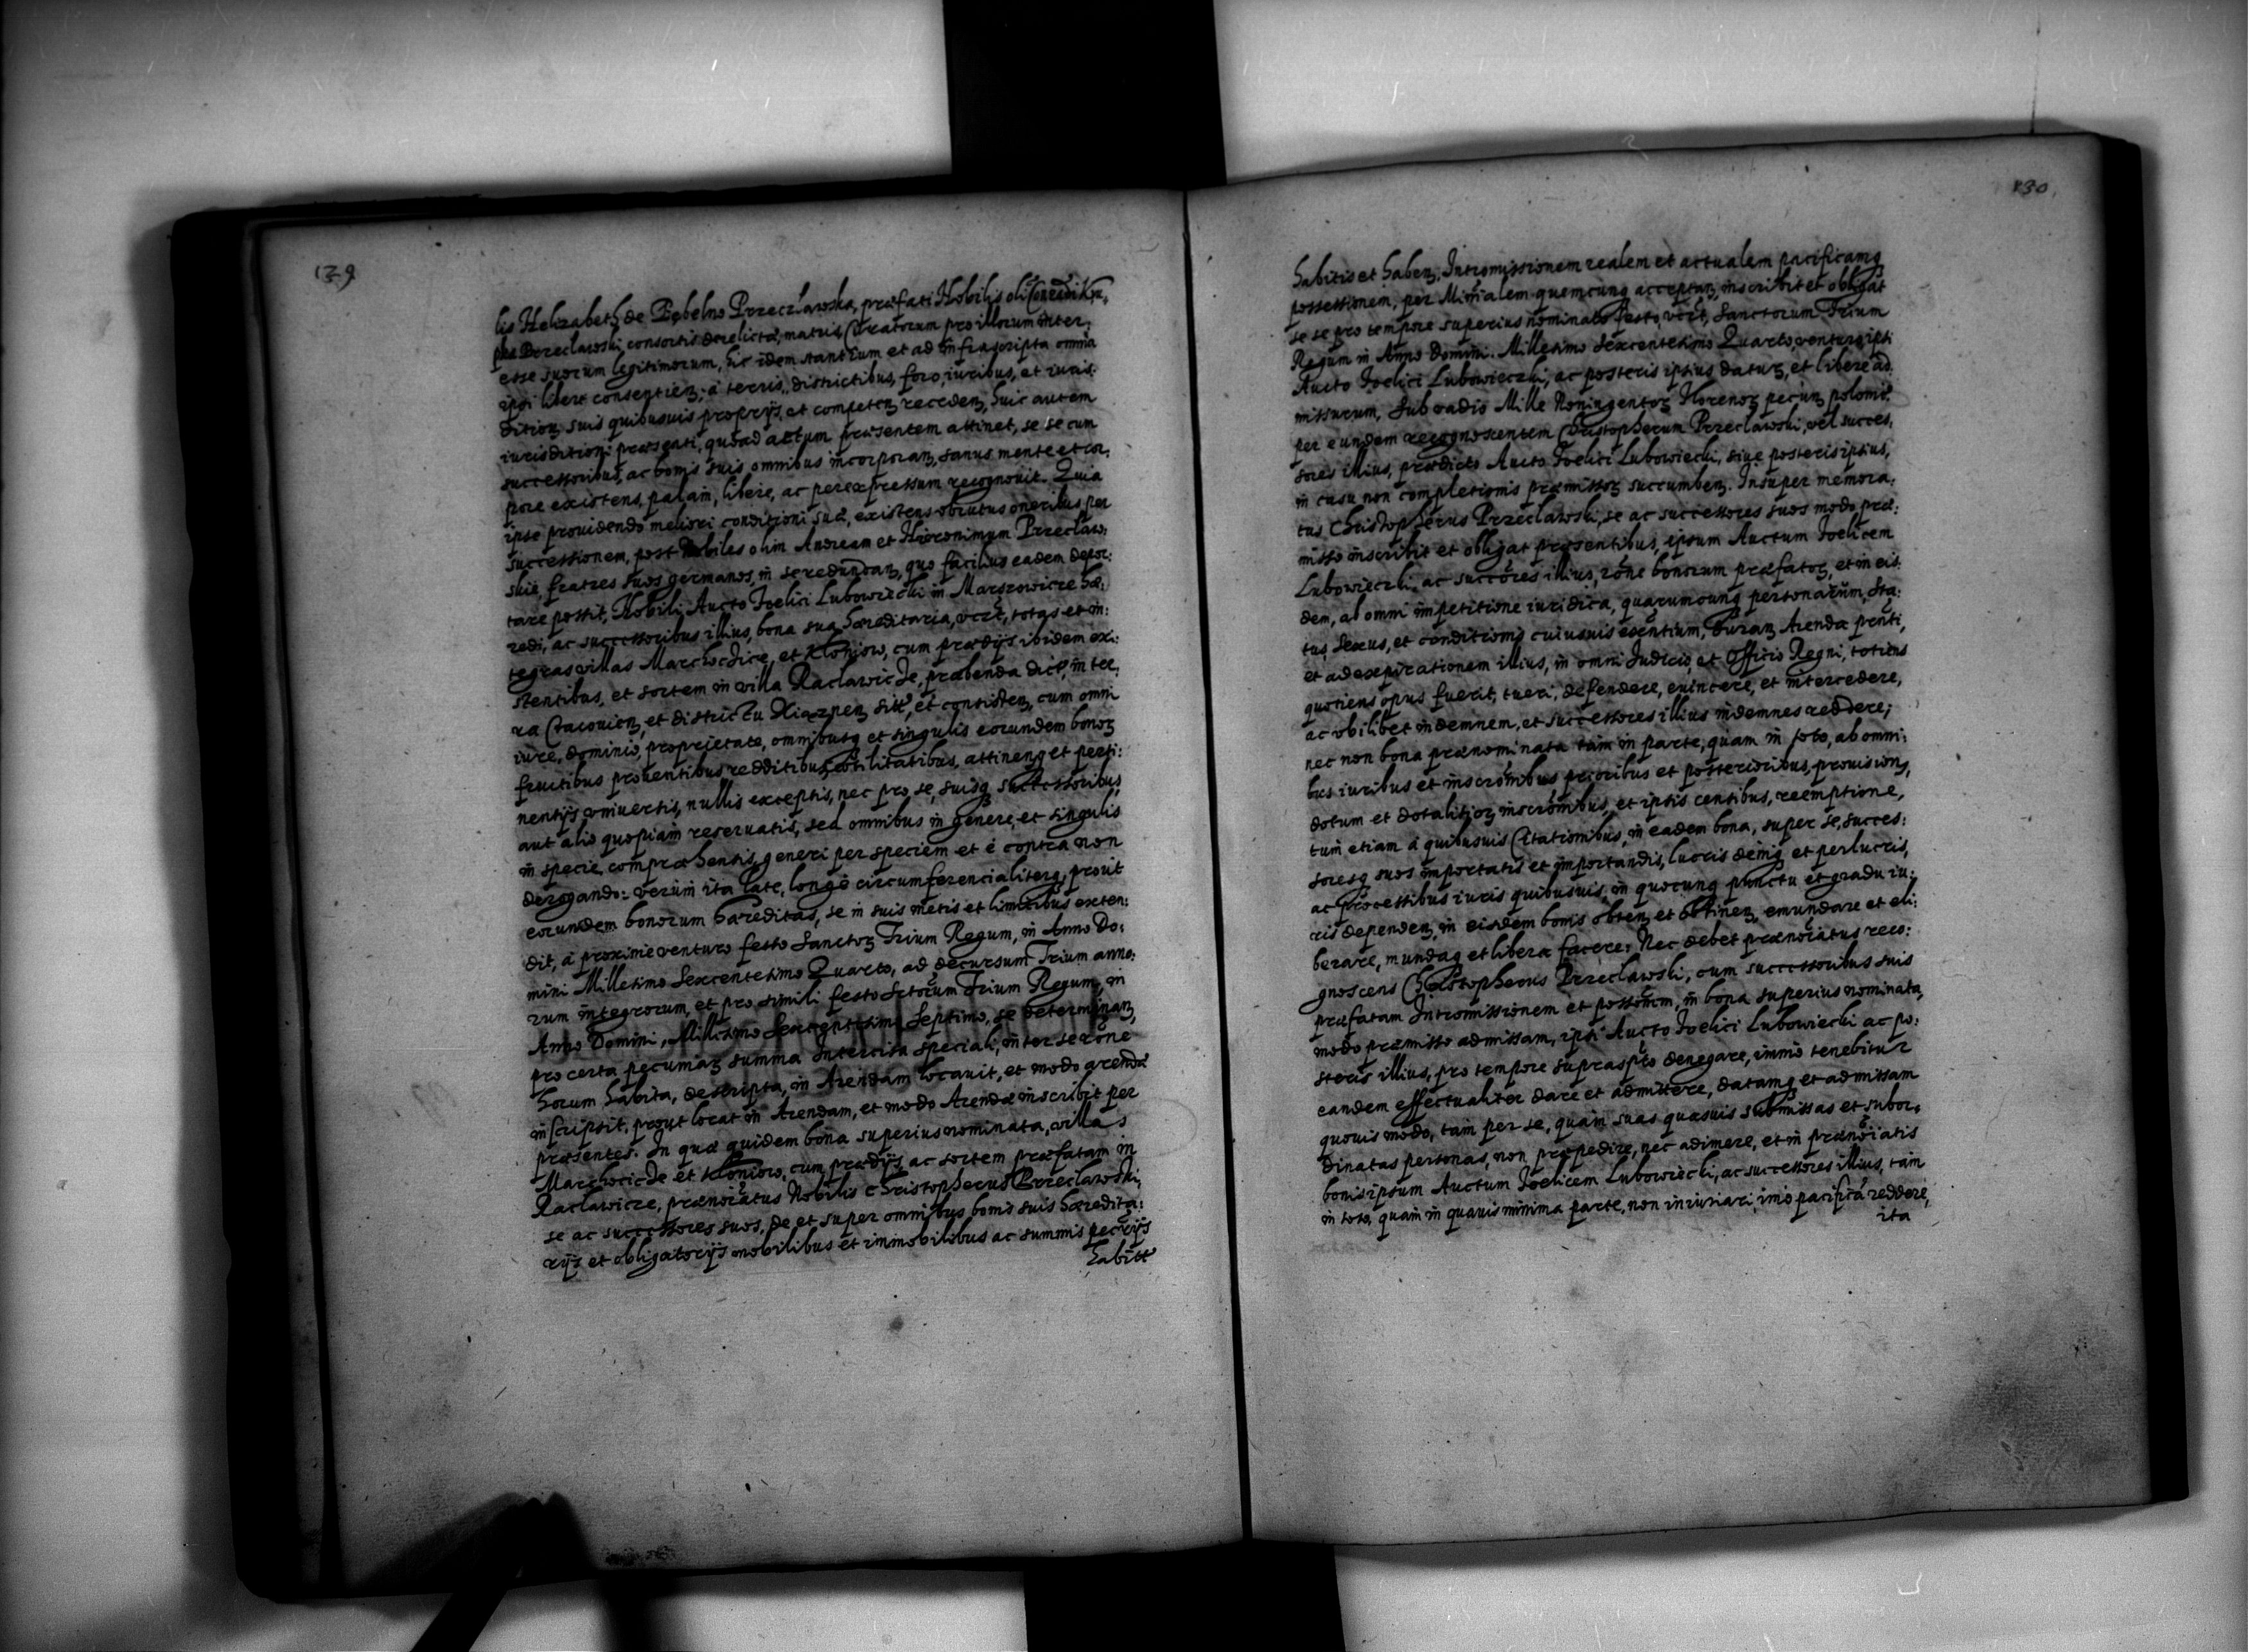 129
lis Helizabeth de Bębelno Przeczlawska, præfati Nobilis oli Conradi
Przeclawski consortis derelictæ, matris Curatorum pro illorum inter,
esse suorum legitimorum, hic idem stantium et ad infrascripta omnia
ipsi libere consentien; a terris, districtibus, foro, iuribus, et iuris:
dition suis quibusuis proprijs et competen receden, huic autem
iurisditioni præsenti, quoad actum præsentem attinet, se se cum
successoribus, ac bonis suis omnibus incorporan, sanus mente et cor,
pore existens, palam, libere, ac per expressum recognouit. Quia
ipse prouidendo meliori conditioni suæ, existens obrutus oneribus per
successionem, post Nobiles olim Andream et Hieronimum Przeclaw:
skie, fratres suos germanos, in se redundan, quo facilius eadem depor:
tare possit, Nobili Aucto Foelici Lubowiecki in Marszowicze hæ:
redi, ac successoribus illius, bona sua hæreditaria, vczt, totas et in:
tegras villas Marchocicze, et Kloniow, cum prædijs ibidem exi:
stentibus, et sortem in villa Raclawicze, præbenda dict, in ter,
ra Cracouien, et districtu Xiaznen sitt, et consisten, cum omni
iure, dominio, proprietate, omnibusq et singulis eorundem bonoz
fructibus prouentibus redditibus, vtilitatibus, attinen et perti:
nentijs vniuersis, nullis exceptis, nec pro se, suisq successoribus,
aut alio quopiam reseruatis, sed omnibus in genere, et singulis
in specie, compræhensis generi per speciem et è contra non
derogando: verùm ita late, longè circumferencialiterq, prout
eorundem bonorum hæreditas, se in suis metis et limitibus exten:
dit, à proximè venturo festo Sanctoz Trium Regum, in Anno Do:
mini Millesimo Sexcentesimo Quarto, ad decursum Trium anno:
rum integrorum, et pro simili festo Sctorum Trium Regum, in
Anno Domini, Millesimo Sexcentesimo Septimo, se determinan,
pro certa pecuniaz summa Intercisa speciali, inter se rone
horum habita, descripta, in Arendam locauit, et modo arendæ
inscripsit, prout locat in Arendam, et modo Arendæ inscribit per
præsentes. In quæ quidem bona superius nominata, villas
Marchocicze et Kloniow, cum prædijs, ac sortem præfatam in
Raclawicze, prænoiatus Nobilis Christopherus Przeclawski,
se ac successores suos, de et super omnibus bonis suis hæredita:
rijs et obligatorijs mobilibus et immobilibus ac summis pecrijs
habitt
130
habitis et haben, Intromissionem realem et actualem pacificamq
possessionem, per Minialem quemcunq acceptan, inscribit et obligat
se se pro tempore superius nominato festo, vczt, Sanctorum Trium
Regum in Anno Domini. Millesimo Sexcentesimo Quarto, venturo, ipsi
Aucto Foelici Lubowieczki, ac posteris ipsius datur, et libere ad:
missurum, Sub vadio Mille Noningentoz florenoz pecun polonic.
per eundem recognoscentem Christopherum Przeclawski, vel succes,
sores illius, prædicto Aucto Foelici Lubowiecki, siue posteris ipsius,
in casu non completionis præmissoz succumben. Insuper memora:
tus Christopherus Przeclawski, se ac successores suos modo præ:
misso inscribit et obligat præsentibus, ipsum Auctum Foelicem
Lubowieczki, ac succores illius, rone bonorum præfatoz, et in eis:
dem, ab omni impetitione iuridica, quarumcunq personarum, sta:
tus, sexus, et conditionis cuiusuis existentium, duran Arenda pnti,
et ad expirationem illius, in omni Iudicio, et Officio Regni, totiens
quotiens opus fuerit, tueri, defendere, euincere, et intercedere,
ac vbilibet indemnem, et successores illius indemnes reddere;
nec non bona prænominata tàm in parte, quam in toto, ab omni:
bus iuribus et inscrònibus, prioribus et posterioribus, prouisions,
dotum et dotalitioz inscrònibus, et ipsis censibus, reemptione,
tum etiam à quibusuis Citationibus, in eadem bona, super se, succes:
soresq suos importatis et importandis, lucris deniq et perlucris,
ac processibus iuris quibusuis, in quocunq punctu et gradu iu:
ris dependen, in eisdem bonis obten et obtinen, emundare et eli:
berare, mundaq et libera facere: Nec debet prænoiatus reco:
gnoscens Christopherus Przeclawski, cum successoribus suis
præfatam Intromissionem et possonem, in bona superius nominata,
modo præmisso admissam, ipsi Aucto Foelici Lubowiecki ac po:
steris illius, pro tempore supraspto denegare, immo tenebitur
eandem effectualiter dare et admittere, datamq et admissam
quouis modo, tam per se, quàm suas quasuis submissas et subor,
dinatas personas, non præpedire, nec adimere, et in prænoiatis
bonis ipsum Auctum Foelicem Lubowiecki, ac successores illius, tàm
in toto, quàm in quauis minima parte, non iniuriari, imò pacificà reddere,
ita